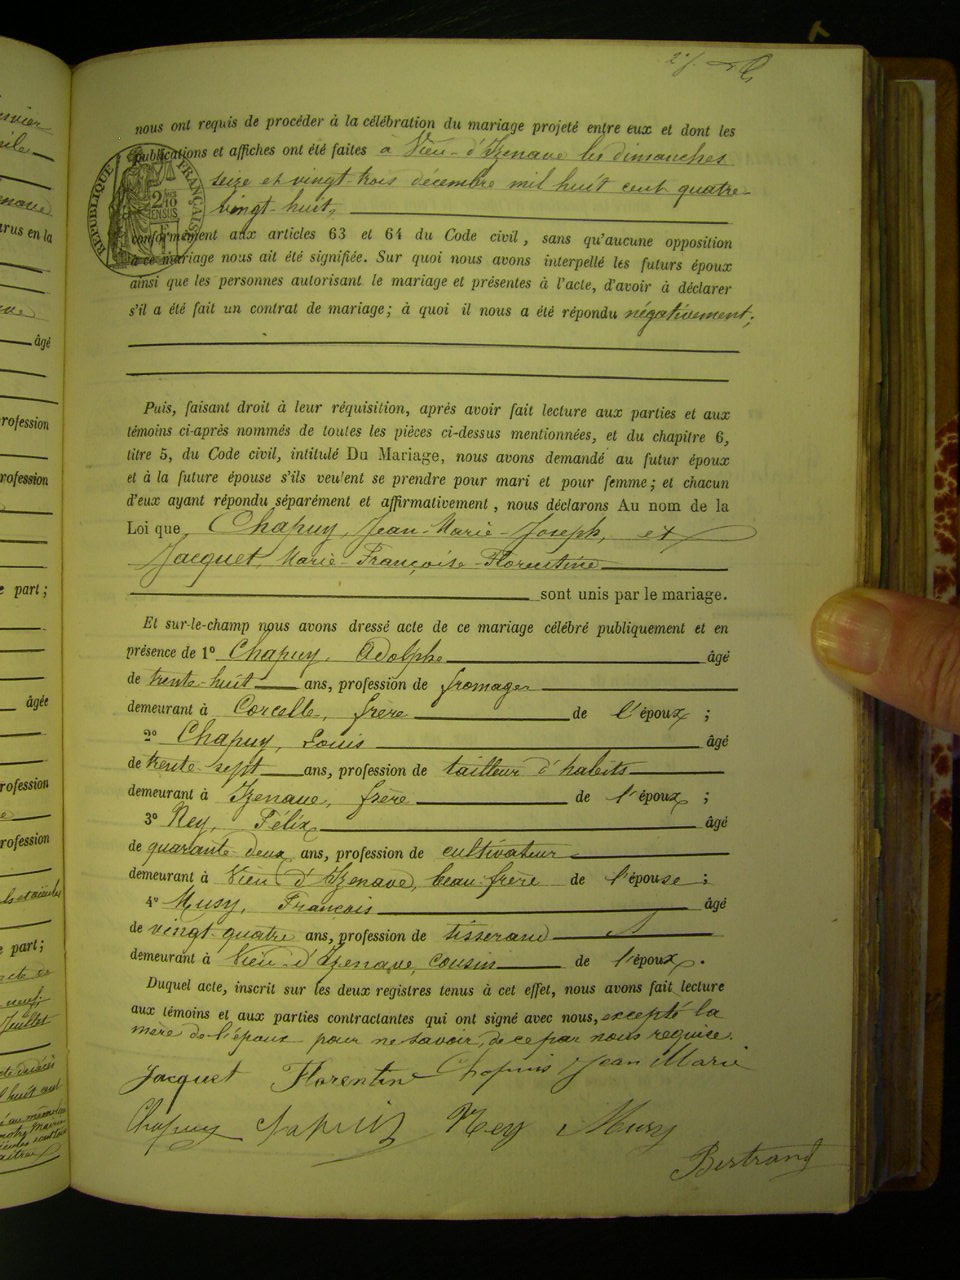 nous ont requis de procéder à la célébration du mariage projeté entre eux et dont les
publications et affiches ont été faites à Vieu-d'Izenave les dimanches
seize et vingt-trois décembre mil huit cent quatre-
vingt-huit,
conformément aux articles 63 et 64 du Code civil, sans qu'aucune opposition
à ce mariage nous ait été signifiée. Sur quoi nous avons interpellé les futurs époux
ainsi que les personnes autorisant le mariage et présentes à l'acte, d'avoir à déclarer
s'il a été fait un contrat de mariage; à quoi il nous a été répondu négativement;
RÉPUBLIQUE FRANÇAISE
Puis, faisant droit à leur réquisition, après avoir fait lecture aux parties et aux
témoins ci-après nommés de toutes les pièces ci-dessus mentionnées, et du chapitre 6,
titre 5, du Code civil, intitulé Du Mariage, nous avons demandé au futur époux
et à la future épouse s'ils veulent se prendre pour mari et pour femme; et chacun
d'eux ayant répondu séparément et affirmativement, nous déclarons Au nom de la
Loi que Chapuy, Jean-Marie-Joseph, et
Jacquet, Marie-Françoise-Florentine
sont unis par le mariage.
Et sur-le-champ nous avons dressé acte de ce mariage célébré publiquement et en
présence de 1° Chapuy, Adolphe âgé
de trente-huit ans, profession de fromager
demeurant à Corcelle, frère de l'époux;
2° Chapuy, Louis âgé
de trente-sept ans, profession de tailleur d'habits
demeurant à Izenave, frère de l'époux;
3° Rey, Félix âgé
de quarante-deux ans, profession de cultivateur
demeurant à Vieu d'Izenave, beau-frère de l'épouse;
4° Musy, François âgé
de vingt-quatre ans, profession de tisserand
demeurant à Vieu-d'Izenave, cousin de l'époux.
Duquel acte, inscrit sur les deux registres tenus à cet effet, nous avons fait lecture
aux témoins et aux parties contractantes qui ont signé avec nous, excepté la
mère de l'époux pour ne savoir, de ce par nous requise.
Jacquet Florentine Chapuis Jean Marie
Chapuy Rey Musy
Bertrand